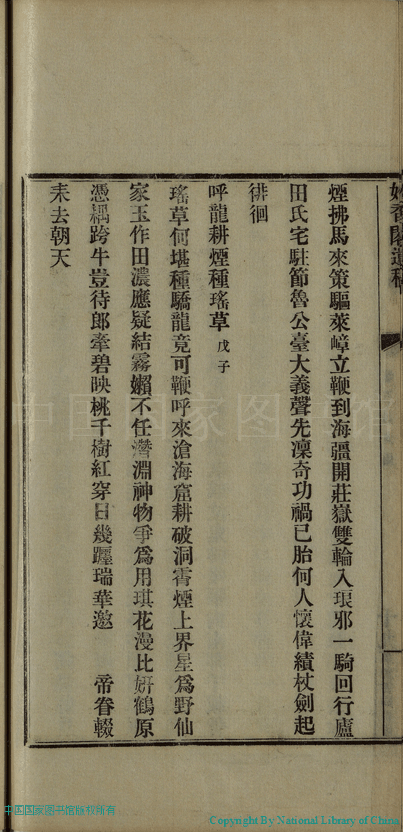 煙拂馬來策驅萊嶂立鞭到海疆開莊嶽雙輪入琅邪一騎回行廬
田氏宅駐節魯公臺大義聲先凜奇功禍已胎何人懷偉績杖劍起
徘徊
呼龍耕煙種瑤草 戊子
瑤草何堪種驕龍竟可鞭呼來滄海窟耕破洞霄煙上界星爲野仙
家玉作田濃應疑結霧嬾不任潛淵神物爭爲用琪花漫比妍鶴原
憑耦跨牛豈待郎牽碧映桃千樹紅穿日幾躔瑞華邀 帝眷輟
耒去朝天
中国国家图书馆
中国国家图书馆版权所有
Copyright By National Library of China